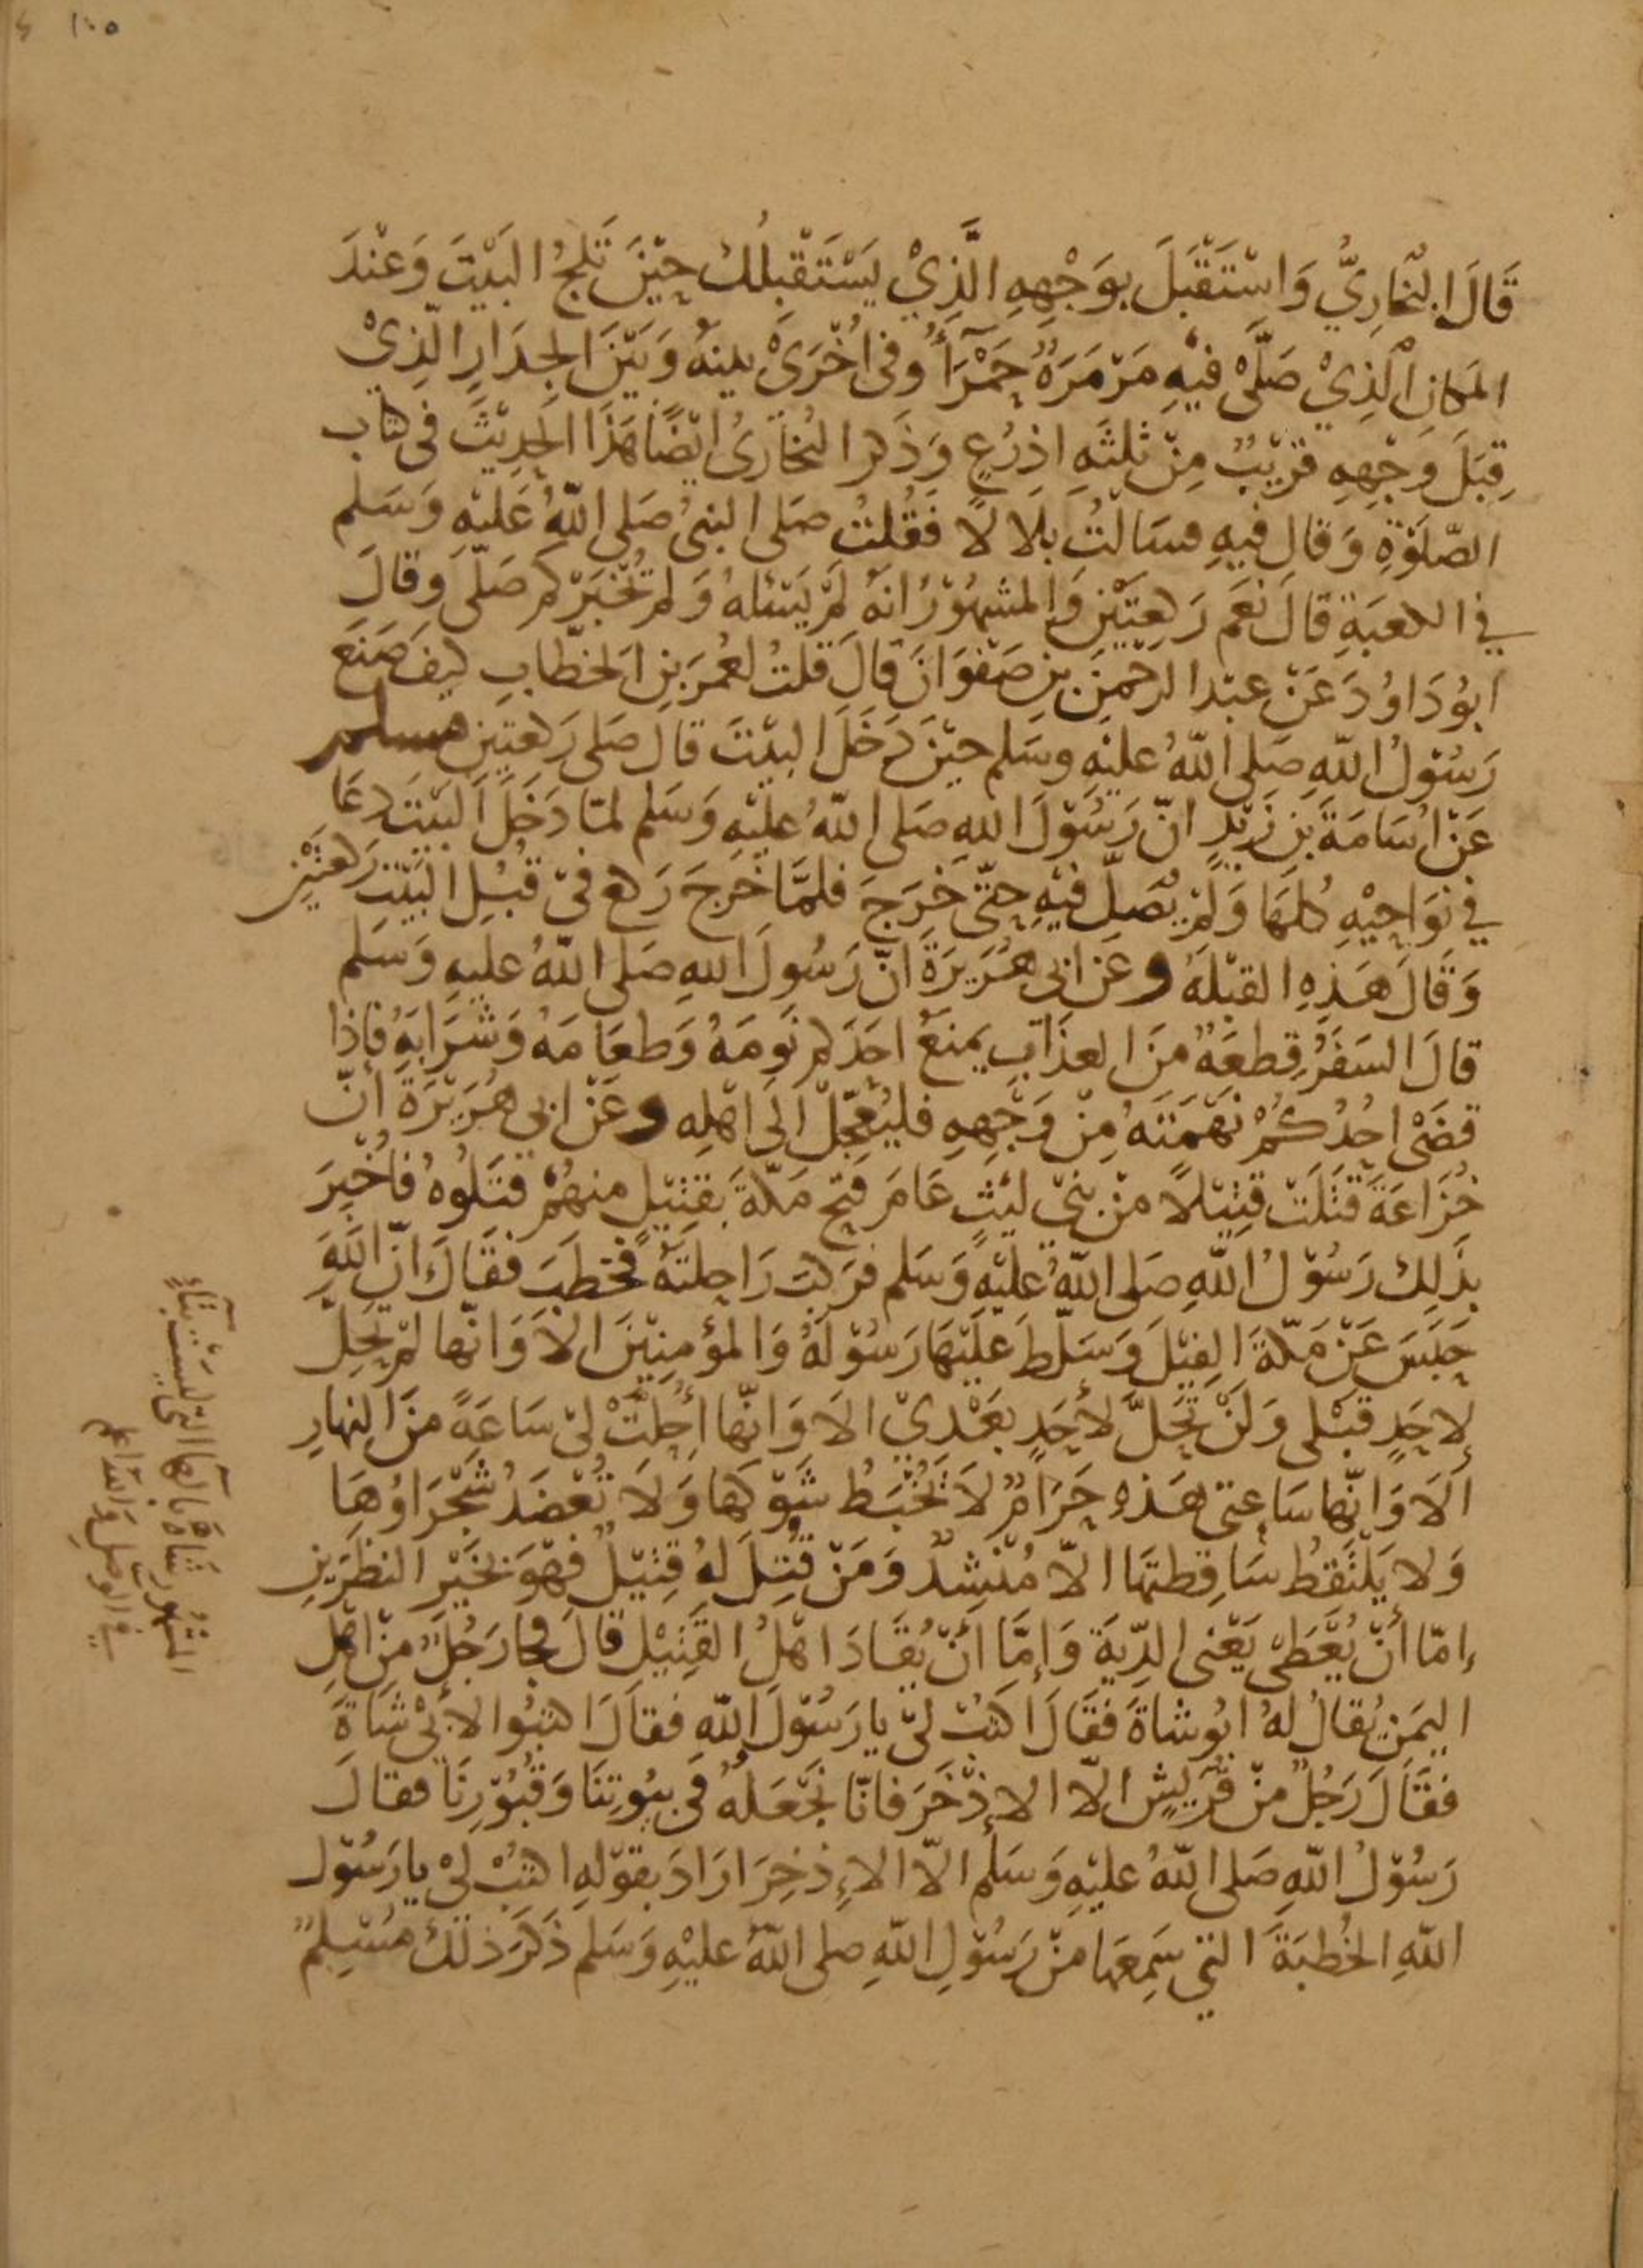 ١٠٥
قَالَ البُخَارِيُّ وَاسْتَقْبَلَ بِوَجْهِهِ الَّذِيْ يَسْتَقْبِلُكَ حِيْنَ تَلِجُ البَيْتَ وَعِنْدَ
المَكَانِ الَّذِيْ صَلَّى فِيْهِ مَرْمَرَةٌ حَمْرَآءُ وَفي اُخْرَىْ بينَهُ وَبَيْنَ الجِدَارِ الَّذِيْ
قِبَلَ وَجْهِهِ قَرِيْبٌ مِنْ ثلثَهِ اذرُعٍ وَذَكرا البُخَارىُ ايْضًا هَذَا الحَدِيْثَ في كتاب
الصّلوٰةِ وَقال فيهِ فسَالتُ بلالا فَقُلتُ صَلى النبىُ صَلى اللّهُ عَليْهِ وَسَلم
في الكعبَةِ قالَ نعَم رَكعتَيْنِ وَالمشهُوْرُ انهُ لَمْ يَسْئلهُ وَلم يُخبِرْ كم صَلّى وقالَ
ابوُ دَاوُدَ عَنْ عبْد الرحْمٰنِ بنِ صَفْوَانَ قالَ قلتُ لعُمَرَ بنِ الخطّابِ كيفَ صَنَعَ
رَسُوْلُ اللّهِ صَلى اللّهُ عليْهِ وسَلم حيْنَ دَخَلَ البيْتَ قال صَلى رَكعتيَنِ مسلم
عَنْ اُسَامَةَ بنِ زَيْدٍ انّ رَسُوْلَ اللهِ صَلى اللّهُ عليْهِ وَسَلم لمّا دَخَلَ البَيْتَ دعَا
في نوَاحِيْهِ كلهَا وَلمْ يُصَلِّ فيْهِ حتّى خَرَجَ فلمَّا خَرَجَ رَكع فيْ قُبُلِ البَيْتِ رَكعتَيْنِ
وَقَالَ هَذِهِ القبْلَهُ وعَن ابى هُرَيرَةَ انّ رَسُولَ اللهِ صَلى اللّهُ عليهِ وَسَلم
قالَ السَفَرُ قِطعَهٌ منَ العذَابِ يمنَعُ احَدَكم نَومَهُ وَطعَامَهُ وَشَرَابَهُ فاِذا
قضَىْ احدُكُمْ نَهْمَتَهُ مِنْ وَجْهِهِ فليُعَجِّلْ اِلَى اَهْلِهِ وعَنْ ابى هُرَيْرَةَ انّ
خُزَاعَةَ قَتَلَتْ قتِيْلاً منْ بنيْ ليْثٍ عَامَ فتحِ مَكّةَ بقتِيْلٍ منهُمْ قتَلُوهُ فَاُخْبِرَ
بذَلِكَ رَسُوْلُ اللّهِ صَلى اللّهُ عليْهِ وَسَلم فرَكبَ رَاحِلتَهُ فخطَبَ فقَالَ انّ اللّهَ
حَبَسَ عَنْ مَكّةَ الفِيْلَ وَسَلّطَ عَلَيْهَا رَسُوْلَهُ وَالمؤمِنِيْنَ الاَ وَانّها لمْ تَحِلَّ
لاحَدٍ قَبْلى وَلَنْ تَحِلَّ لأحَدٍ بَعْدِيْ الاَ وَانّها أُحِلّتْ ليْ سَاعَهً منَ النهارِ
اَلاَ وَانّها سَاعتىْ هَذهِ حَرَامٌ لاَ تُخْبَطُ شَوْكهَا وَلاَ تُعْضَدُ شَجْرَاؤهَا
وَلا يَلْتَقِطُ سَاقِطتهَا الاّ مُنْشِدٌ وَمَنْ قُتِلَ لهُ قتِيْلٌ فهْوَ بخَيْرِ النظَرَينِ
إمّا أنْ يُعْطَىْ يَعْنى الدِّيَةَ وَإِمَّا أنْ يُقَادَ اهْلُ القَتِيْلِ قالَ فجارَجُلٌ مِنْ اهْلِ
اليمَنِ يُقالُ لهُ ابُو شاةَ فقَالَ اكتُبْ ليْ يا رَسُوْلَ اللّهِ فقالَ اكتبُوا لاَبىْ شاةَ
فقَالَ رَجُلٌ منْ قُرَيْشٍ الاّ الاِذْخِرَ فانّا نجْعَلهُ فى بيُوتِنَا وَقُبُوْرِنَا فقالَ
رَسُوْلُ اللّهِ صَلى اللّهُ عليْهِ وَسَلم الاّ الاِذخِرَ ارَادَ بقوْلِهِ اكتبْ ليْ يا رَسُوْلَ
اللّهِ الخُطبَةَ التي سَمِعَها منْ رَسُوْلِ اللّهِ صلى اللّهُ عليْهِ وَسَلم ذَكَرَ ذلكَ مُسْلِمٌ
المشهُور شَاهٌ بالهآ التى ليسَتْ بتاءٍ
في الوصلِ